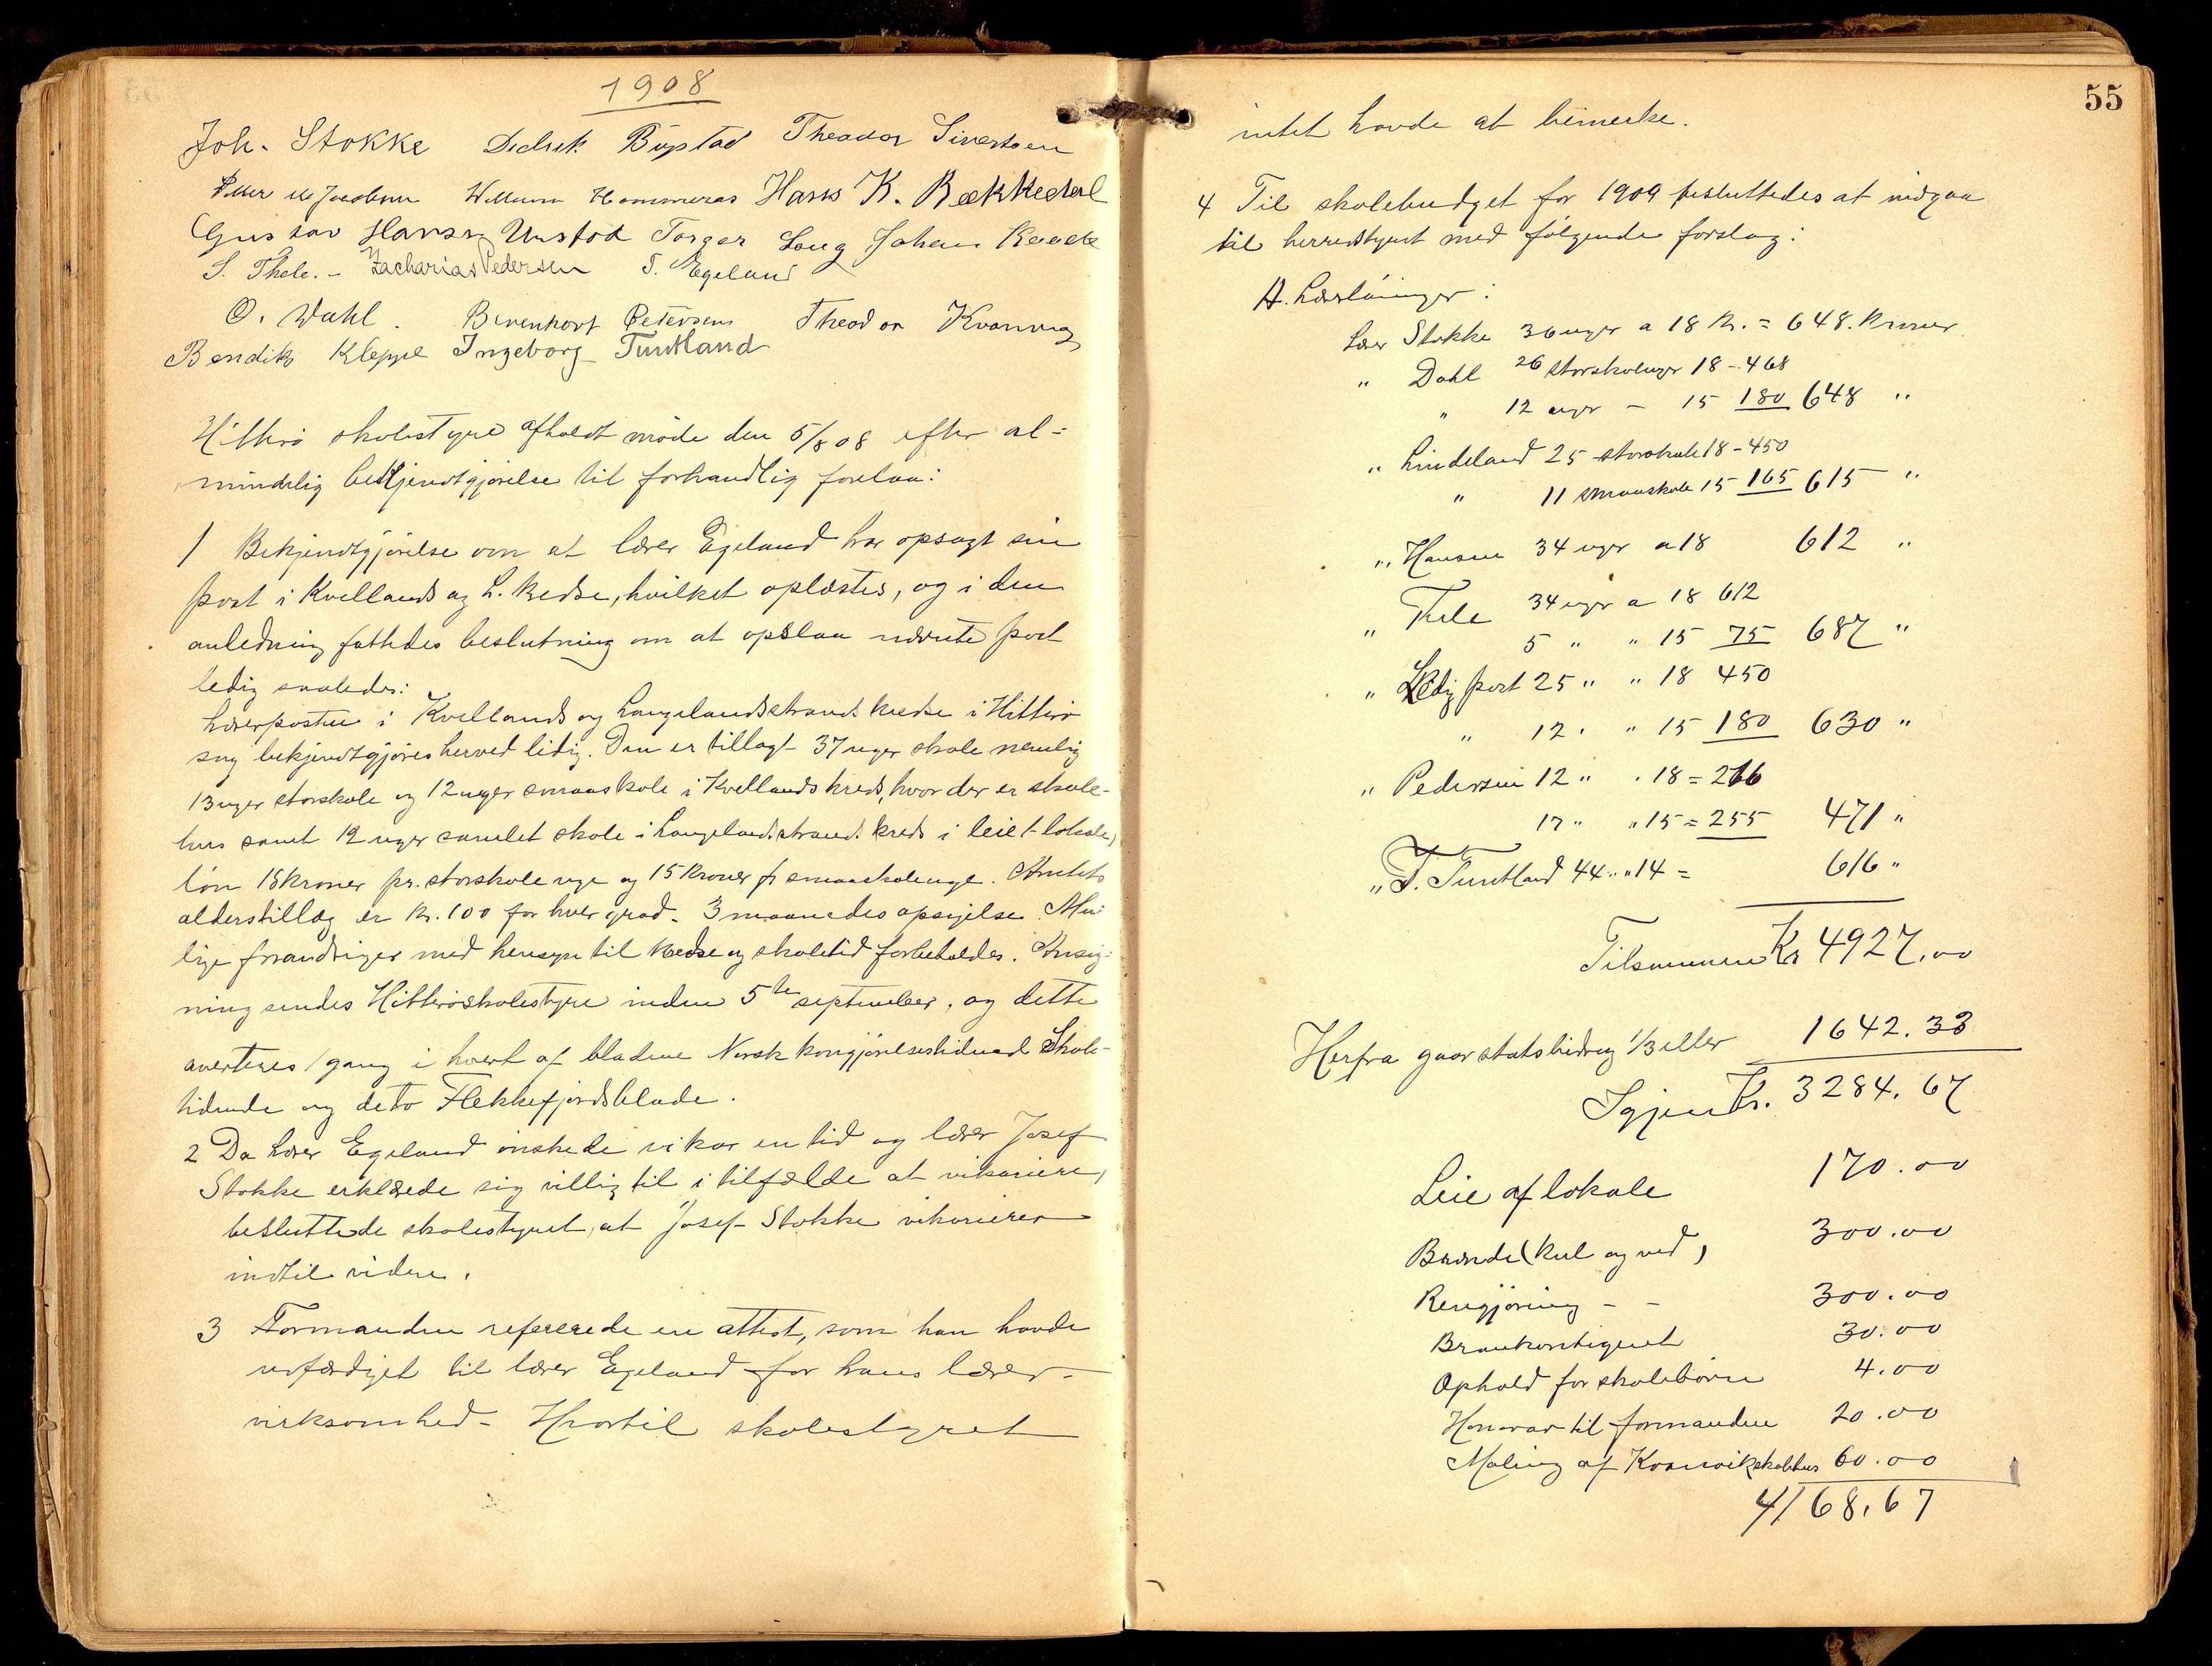 1908
Joh. Stokke Didrik Bøgstad Theodor Sivertsen
Peder M Jacobsen Willum Hammeraas Hans K. Bækkedal
Gustav Hansen Urstad Torger Log Johan Raade
S. Thele. - Zacharias Pedersen T. Egeland
O. Dahl. Berenhart Petersen Theodor Kvanvig
Bendik Kleppe Ingeborg Tuntland
Hitterø skolestyre afholdt møde den 5/8 08 efter al=
mindelig bekjendtgjørelse til forhandlig forelaa:
1 Bekjendtgjørelse om at lærer Egeland har opsagt sin
post i Kvellands og L. kredse, hvilket oplæstes, og i den
anledning fattedes beslutning om at opslaa nævnte post
ledig saaledes:
Lærerposten i Kvellands og Langelandsstrands kredse i Hitterø
sog bekjendtgjøres herved ledig. Den er tillagt 37 uger skole nemlig
13 uger storskole og 12 uger smaaskole i Kvellands kreds, hvor der er skole-
hus samt 12 uger samlet skole i Langelandsstrands kreds i leiet lokale,
løn 18 kroner pr. storskole uge og 15 kroner pr smaaskoleuge. Amtets
alderstillæg er kr. 100 for hver grad. 3 maaneders opsigelse. Mu-
lige forandringer med hensyn til kredse og skoletid forbeholdes. Ansøg-
ning sendes Hitterø skolestyre inden 5te september, og dette
averteres 1 gang i hvert af bladene Norsk kongjørelsestidende Skole-
tidende og de to Flekkefjordsblade.
2 Da Lærer Egeland ønskede vikar en tid og lærer Josef
Stokke erklærede sig villig til i tilfælde at vikariere,
besluttede skolestyret, at Josef Stokke vikarierer
indtil videre.
3 Formanden refererede en attest, som han havde
udfærdiget til lærer Egeland for hans lærer-
virksomhed - Hvortil skolestyret
55
intet havde at bemerke.
4 Til skolebudget for 1909 besluttedes at indgaa
til herredstyret med følgende forslag:
A. Lærerlønninger:
Lærer Stokke 36 uger a 18 kr. = 648. kroner
" Dahl 26 storskoleuger 18 - 468
" 12 uger - 15 180 648 "
" Lindeland 25 storskole 18 - 450
" 11 smaaskole 15 165 615 "
" Hansen 34 uger a 18 612 "
" Thele 34 uger a 18 612
5 " " 15 75 687 "
" Ledig post 25 " " 18 450
" 12 " " 15 180 630 "
" Pedersen 12 " " 18 = 216
17 " " 15 = 255 471 "
" I. Tuntland 44 " " 14 = 616 "
Tilsammen Kr 4927.00
Herfra gaar statsbidrag 1/3 eller 1642.33
Igjen Kr. 3284.67
Leie af lokale 170.00
Brænde (kul og ved) 300.00
Rengjøring - - 300.00
Brankontigent 30.00
Ophold for skolebørn 4.00
Honorar til formanden 20.00
Maling af Kvanvik skolehus 60.00
4168.67